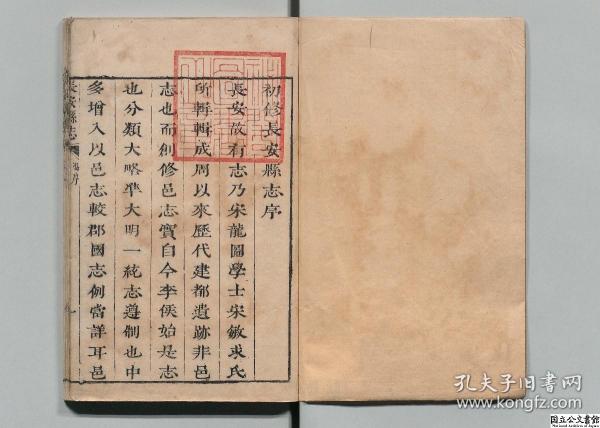 初修長安縣志序
長安故有志乃宋龍圖學士宋敏求氏
所輯輯成周以來歷代建都遺跡非邑
志也而創修邑志實自今李侯始是志
也分類大略準大明一統志遵制也中
多增入以邑志較郡國志例當詳耳邑
長安縣志
孔夫子旧书网
www.kongfz.com
国立公文書館
National Archives of Japan